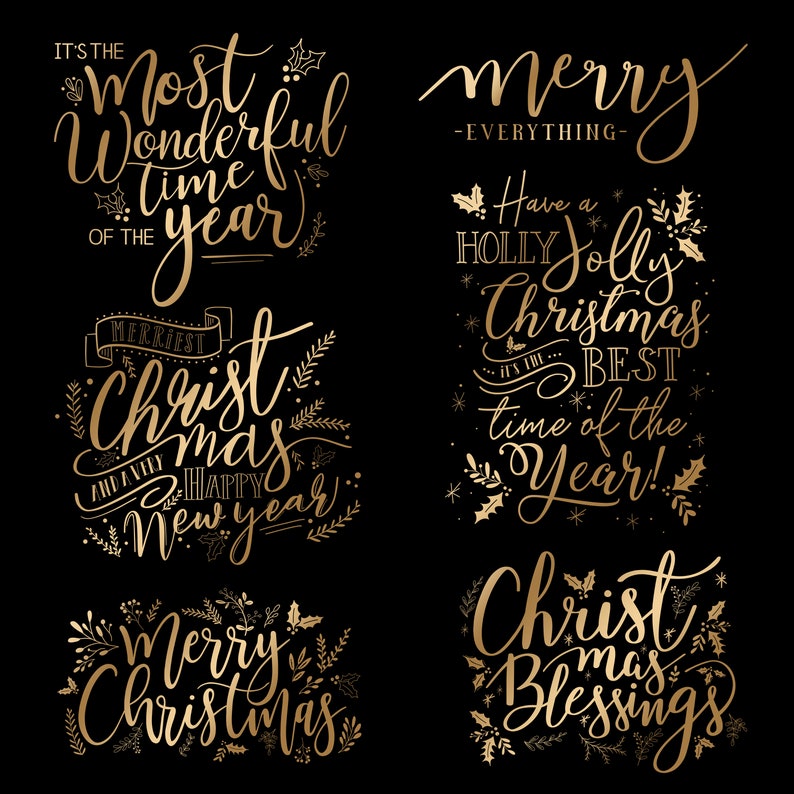 IT'S THE
Most
Wonderful
time
OF THE year
MERRIEST
Christ
mas
AND A VERY HAPPY
New year
Merry
Christmas
merry
-EVERYTHING-
Have a
HOLLY Jolly
Christmas
IT'S THE... BEST
time of the
Year!
Christ
mas
Blessings